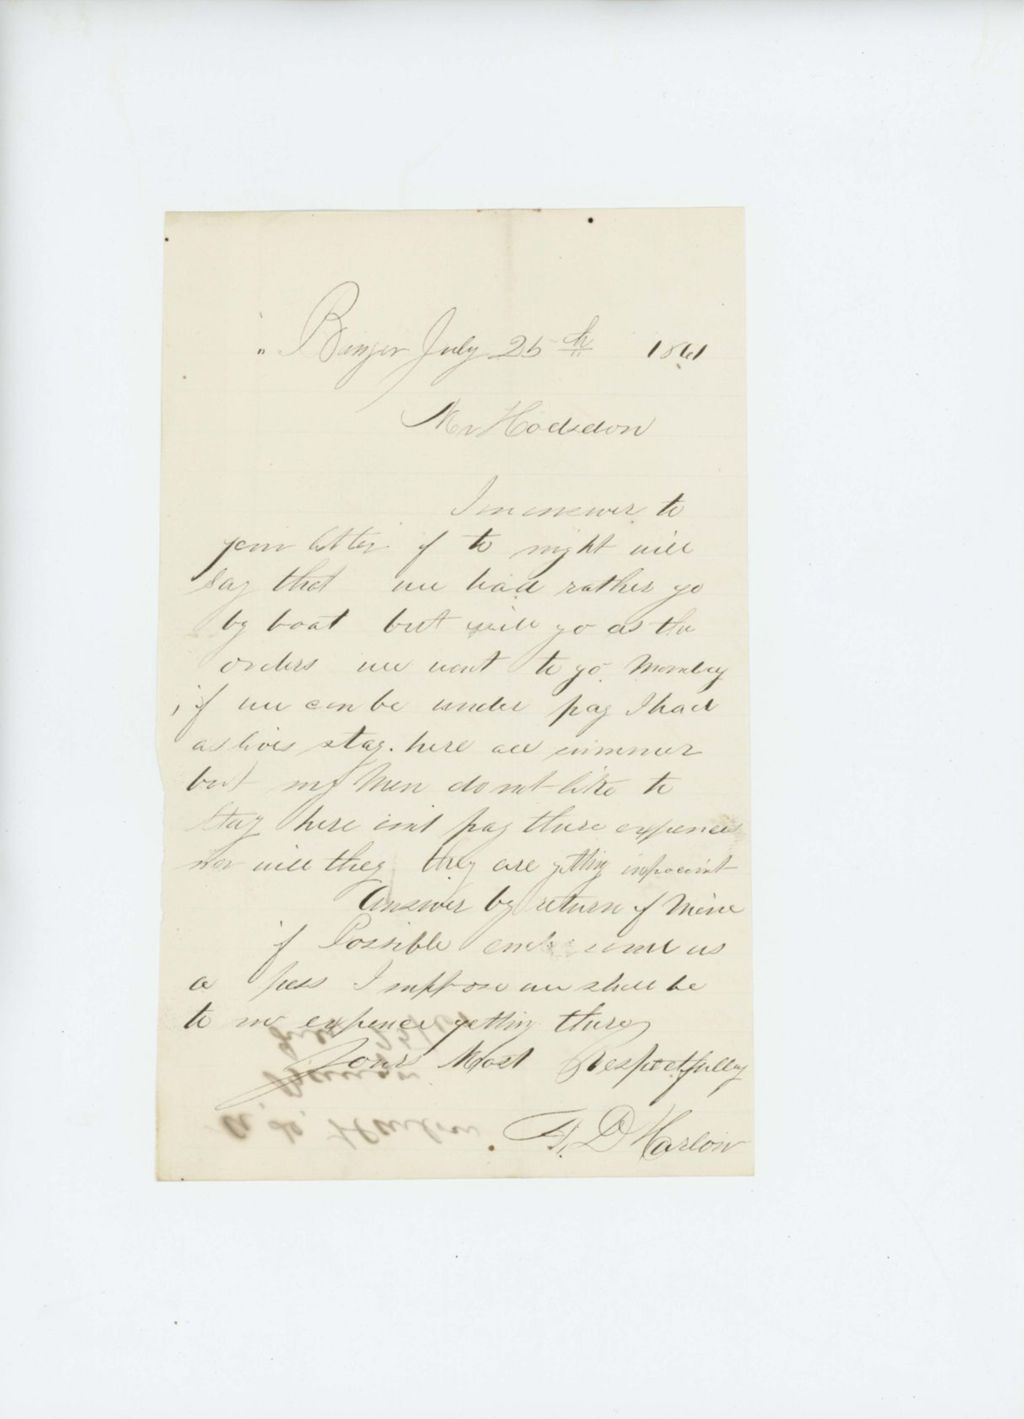 Bangor July 25th 1861
Mr Hodsdon
In answer to
your letter of to night will
say that we had rather go
by boat but will go as the
orders we want to go Monday
if we can be under pay I had
as lives stay here all summer
but my men do not like to
stay here and pay there expences
nor will they they are getting
Answer by return of Mail
if Possible and send us
a pass I suppose we shall be
to no expence getting there
Yours Most Respectfully
F. D Harlow